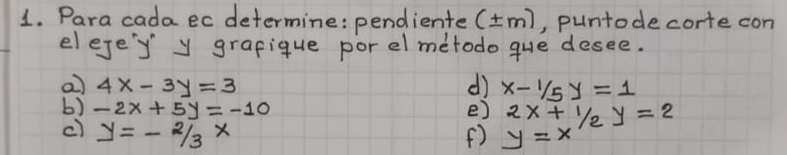 1. Para cada ec determine: pendiente (±m), punto de corte con
el eje "y" y grafique por el método que desee.
a) 4x - 3y = 3
b) -2x + 5y = -10
c) y = - 2/3 x
d) x - 1/5 y = 1
e) 2x + 1/2 y = 2
f) y = x